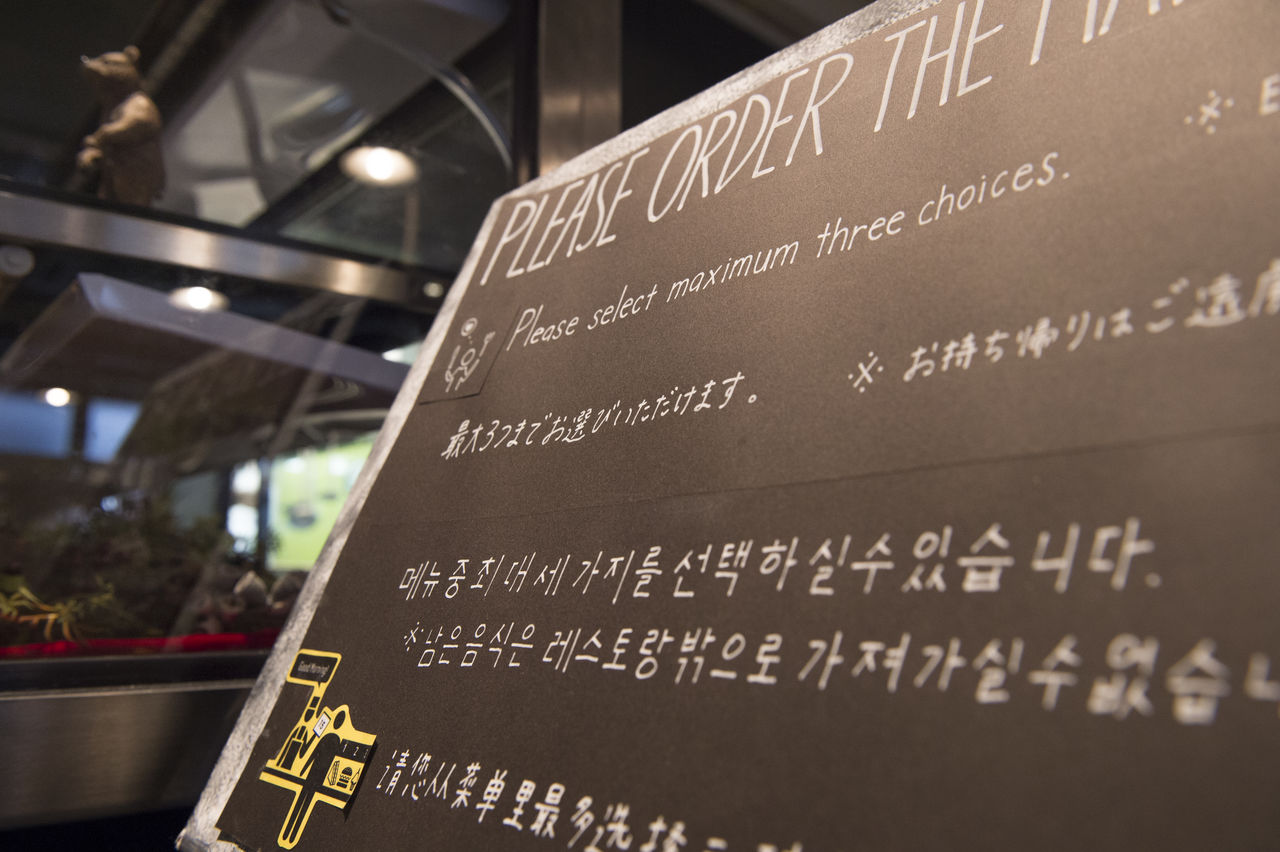 PLEASE ORDER THE
※
Please select maximum three choices.
最大3つまでお選びいただけます。 ※ お持ち帰りはご遠慮
메뉴중최대세가지를 선택하실수있습니다.
※남은음식은 레스토랑밖으로 가져가실수없습니
Good Morning!
请您从菜单里最多选择三